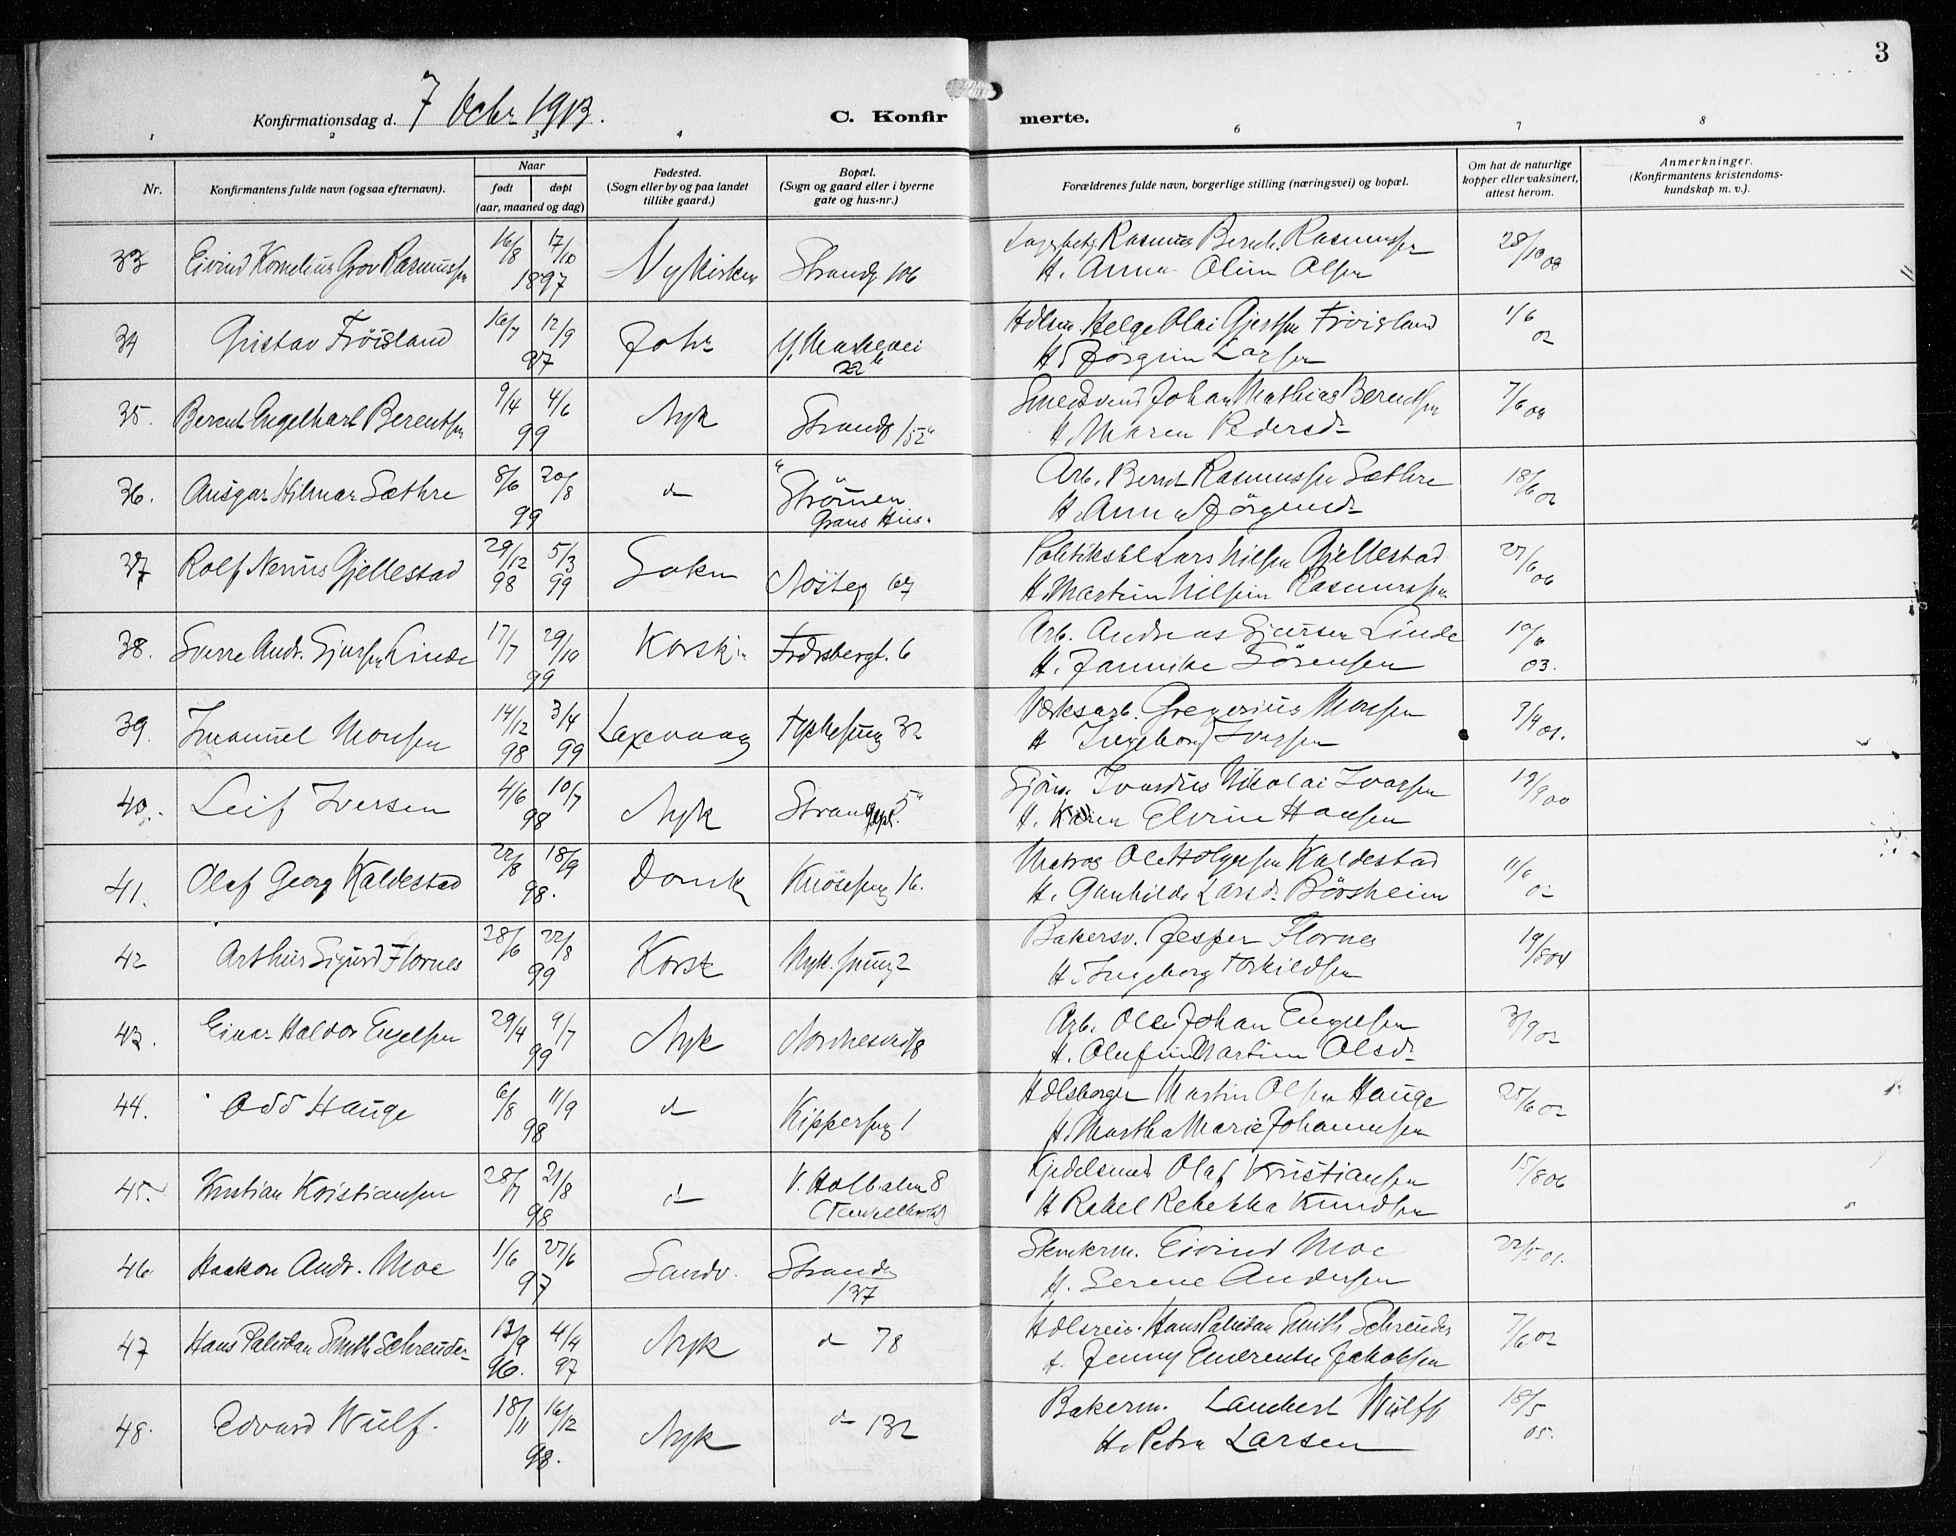 3
Konfirmationsdag d. 7 Octbr 1913.
C. Konfirmerte.
1 2 3 4 6 7 8
Nr.
Konfirmantens fulde navn (ogsaa efternavn).
Naar
født døpt
(aar, maaned og dag)
Fødested.
(Sogn eller by og paa landet
tillike gaard.)
Bopæl.
(Sogn og gaard eller i byerne
gate og hus-nr.)
Forældrenes fulde navn, borgerlige stilling (næringsvei) og bopæl.
Om hat de naturlige
kopper eller vaksinert,
attest herom.
Anmerkninger.
(Konfirmantens kristendoms-
kundskap m. v.).
33 Eivind Kornelius Grov Rasmussen 16/8 17/10 1897 Nykirken Strandg 106 Rasmus Bernh. Rasmussen 28/10 00
H. Anna Olina Olsen
34 Gustav Fröisland 16/7 12/9 97 Joh Helge Olai Gjertsen Fröisland 1/6 02
H. Jörgine Larsen
35. Berent Engelhart Berentsen 9/4 4/6 99 Nyk Strandg 152a Smedsvend Johan Mathias Berentsen 7/6
H. Maren Pedersd.
36. Ansgar Hilmar Sæthre 8/6 20/8 99 d Strömen Arb. Bernt Rasmussen Sæthre 18/6 02
H. Anna Jörgensd.
37 Rolf Nerius Gjellestad 29/12 98 5/3 99 Nösteg 67 Lars Nilsen Gjellestad 27/6 06
H. Martine Nilsine Rasmussen
38. Sverre Andr. Sjursen Linde 17/7 29/10 99 Korsk Fredrsbergt. 6 Arb. Andreas Sjursen Linde 10/6 03.
H. Jannike Sörensen
39. Imanuel Monsen 14/12 98 3/4 99 Laxevaag 32 Værksarb. Gregorius Monsen 9/9 01.
H Ingeborg Iversen
40. Leif Iversen 4/6 10/7 98 Nyk Strand 5a Nikolai Iversen 19/9 00
H. Karen Elvine Hansen
41. Olaf Georg Kaldestad 22/8 18/9 98. Domk Knösesmug 16. Matros Ole Holgersen Kaldestad 11/6 02
H. Gunhilda Larsd. Börsheim
42 Arthur Sigurd Flornes 28/6 22/8 99 Korsk Nyk. smug 2 Bakersv. Jesper Flornes 19/8 04
H. Ingeborg Torkildsen
43. Einar Haldor Engelsen 29/4 9/7 99 Nyk Arb. Ole Johan Engelsen 3/9 02
H. Olufine Martine Olsd.
44. Odd Hauge 6/8 11/9 98 d Kippersmug 1 Hdlsborger Martin Olsen Hauge 25/6 02
H. Martha Marie Johannesen
45. Kristian Kristiansen 28/7 21/8 98 d V. Holbalm 8 Gjedelsmed Olaf Kristiansen 15/8 06
H Rakel Rebekka Knudsen
46 Haakon Andr. Moe 1/6 27/6 97 Sandv. Strandg 137 Eivind Moe 22/5 01.
H. Serene Andersen
47 Hans Paludan Smith Schreuder 13/9 96. 4/4 97 Nyk d 78 Hdlsreis. Hans Paludan Smith Schreuder 7/6 02
H. Jenny Emerentse Jakobsen
48. Edvard Wulf. 18/11 16/12 98. Nyk d 132 Bakerm. Lambert Wulff 18/5 05.
H. Petra Larsen